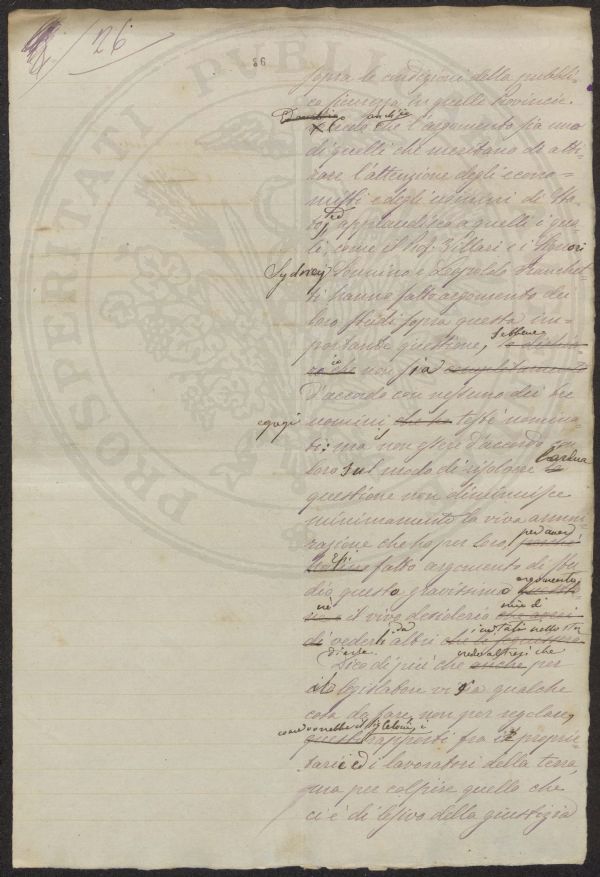 26
36
PROSPERITATI PVBLICAE
sopra le condizioni della pubbli-
ca sicurezza in quelle Provincie.
Dondino anch'io
Credo che l'argomento sia uno
di quelli che meritano di atti-
rare l'attenzione degli econo-
misti e degli uomini di Sta-
to, ed applaudisco a quelli i qua-
li, come il Prof. Villari e i Signori
Sydney Sonnino e Leopoldo Franchet-
ti hanno fatto argomento dei
loro studi sopra questa im-
portante questione, sebbene
io che non sia completamente
d'accordo con nessuno dei tre
egregi uomini che ho testè nomina-
ti: ma il non essere d'accordo con
loro sul modo di risolvere l'ardua
questione non diminuisce
minimamente la viva ammi-
razione che ho per loro, per aver
Essi fatto argomento di stu-
dio questo gravissimo argomento,
nè il vivo desiderio mio di
di vedere altri
Dico di più che credo altresì che per
il legislatore vi sia qualche
cosa da fare, non per regolare,
come vorrebbe i
questi rapporti fra i proprie-
tarii ed i lavoratori della terra,
ma per colpire quello che
ci è di lesivo della giustizia